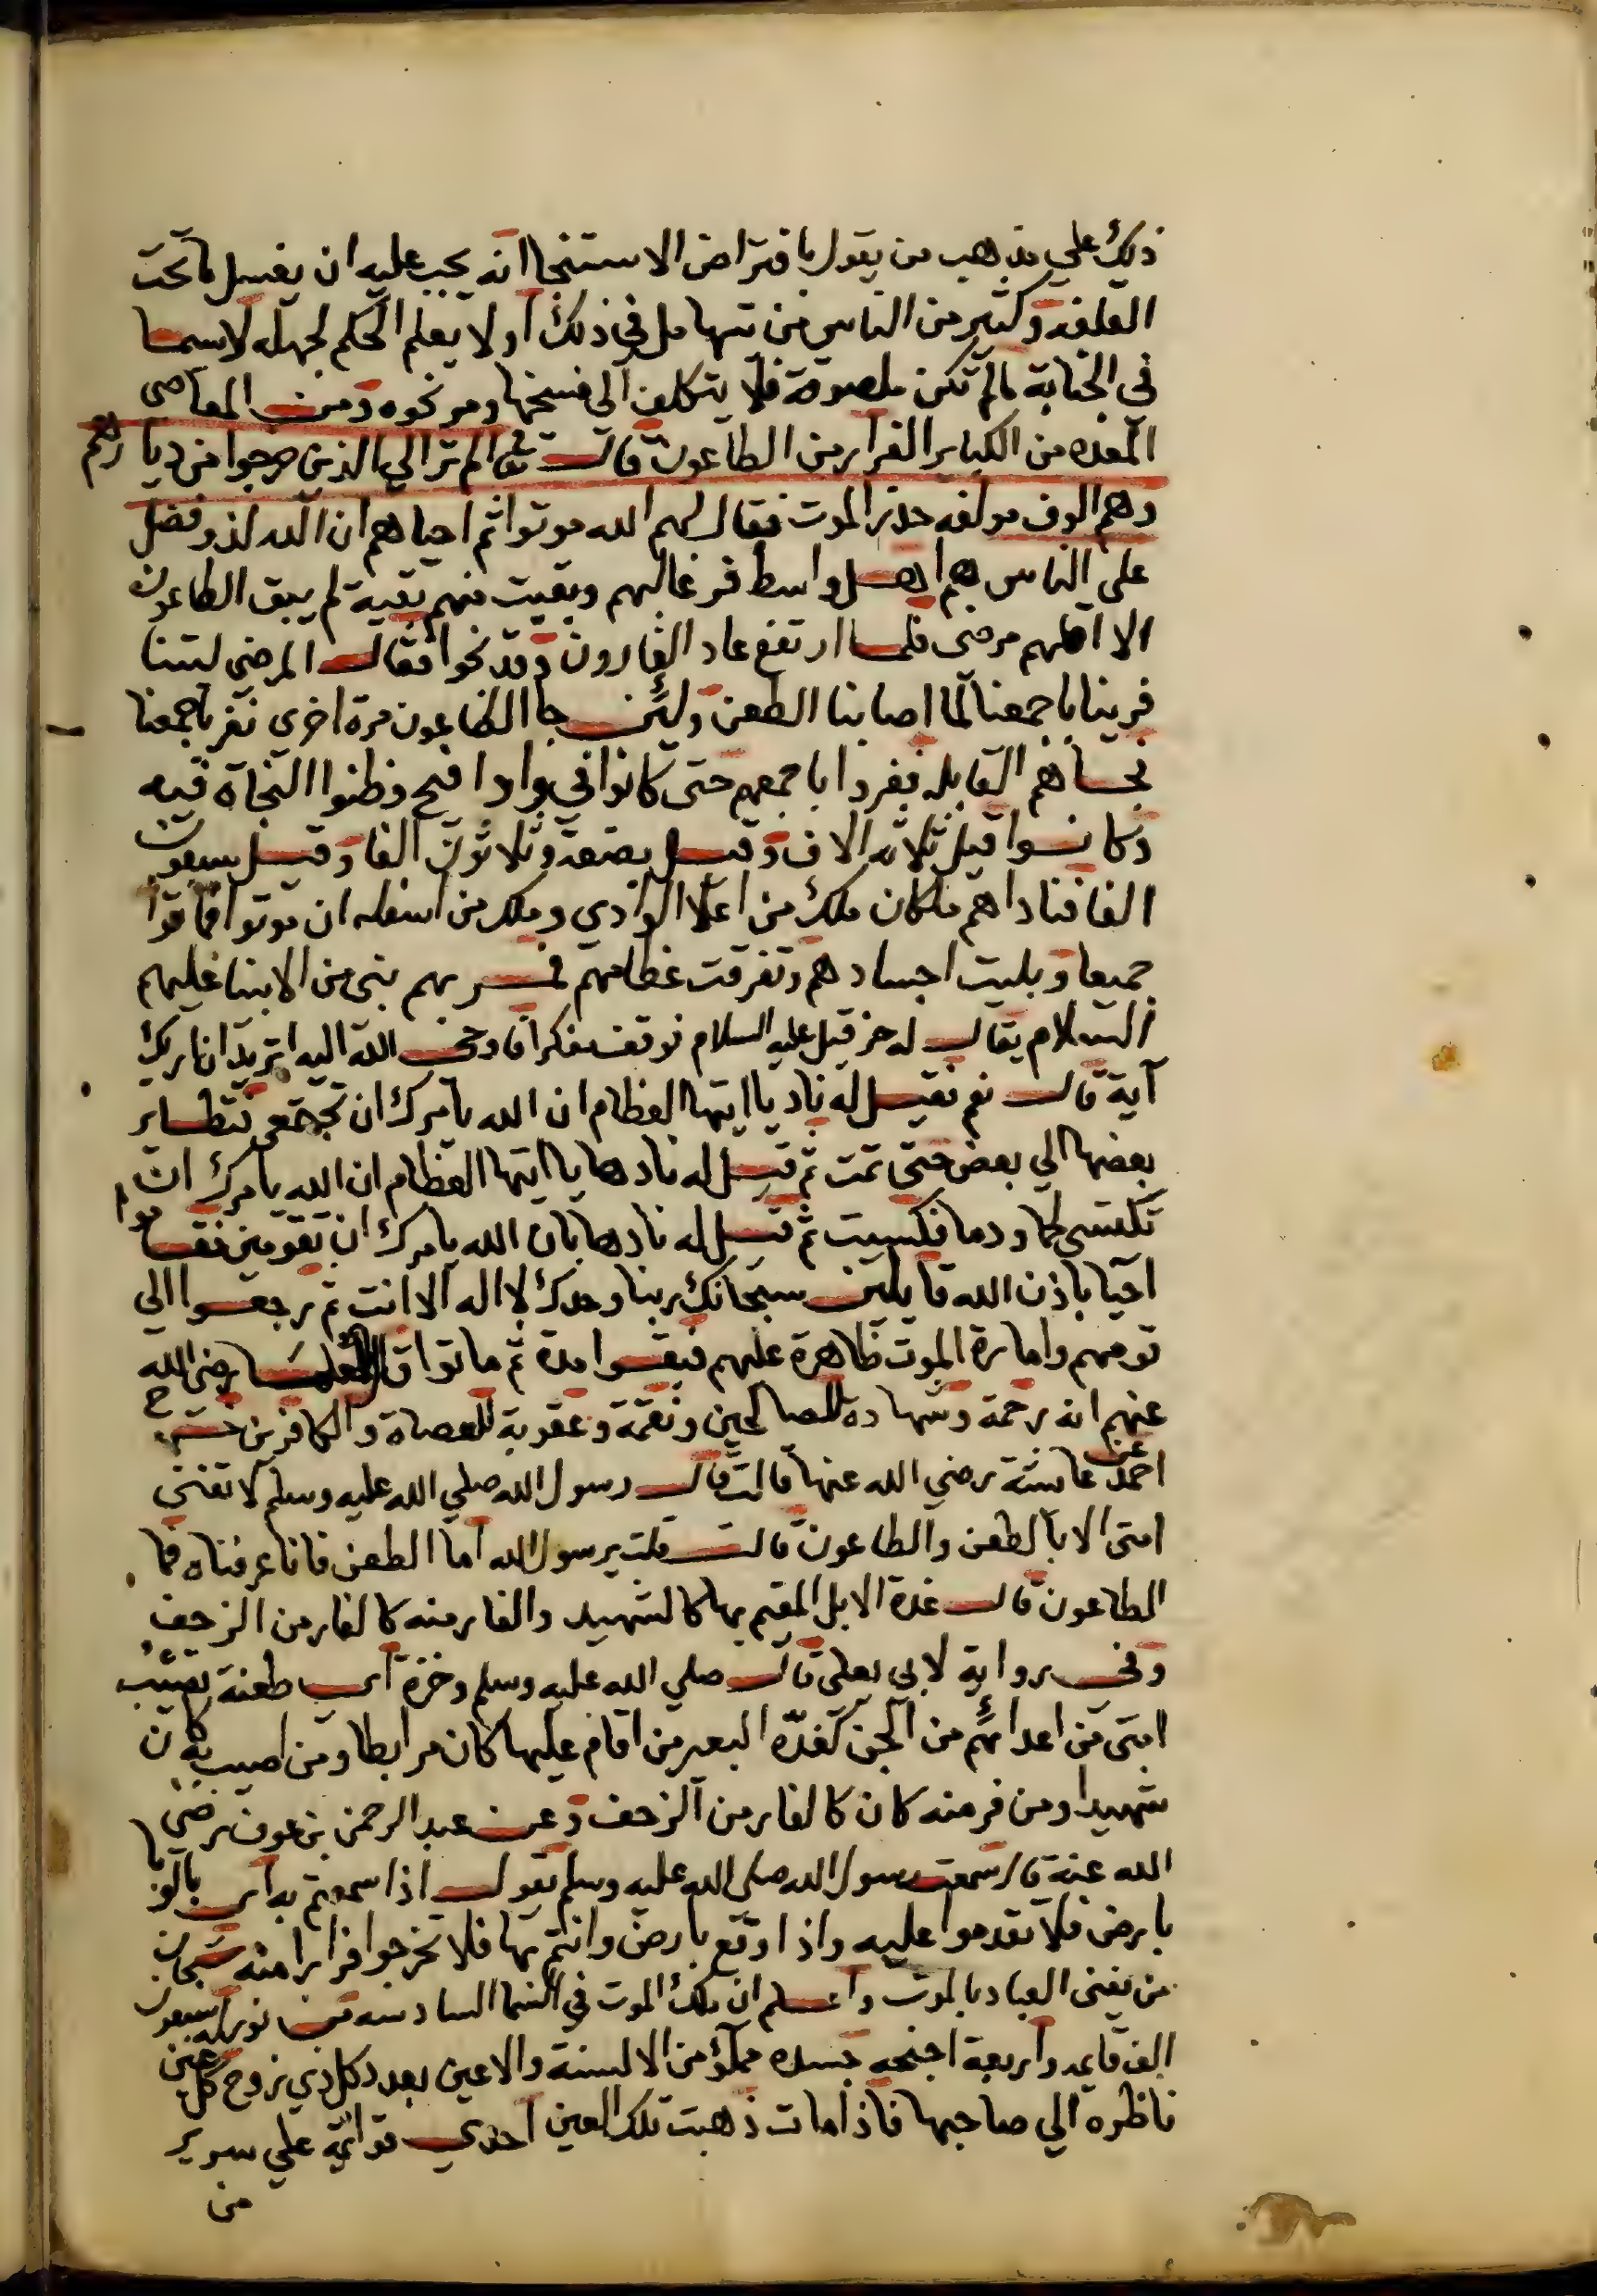 ذلك علي مذهب من يقول بافتراض الاستنجا انه يجب عليه ان يغسل ما تحت
القلفة وكثير من الناس من تساهل في ذلك او لا يعلم الحكم لجهله لاسيما
في الجنابة ما لم تكن ملصوقة فلا يتكلف الي فسخها ومر نحوه ومن المعاصي
المعده من الكباير الفرار من الطاعون قال تعا الم تر الي الذين خرجوا من ديارهم
وهم الوف مولفه حذر الموت فقال لهم الله موتوا ثم احياهم ان الله لذو فضل
علي الناس هم اهل واسط فر غالبهم وبقيت منهم بقية لم يبق الطاعون
الا اقلهم مرضي فلما ارتفع عاد الفارون وقد نجوا فقال المرضي ليتنا
فرينا باجمعنا لما اصابنا الطعن ولين جا الطاعون مرة اخري نفر باجمعنا
فجاهم القابلة ففروا باجمعهم حتي كانوا في واد افيح وظنوا النجاة فيه
وكانوا قيل ثلاثه الاف وقيل بضعة وثلاثون الفا وقيل سبعون
الفا فناداهم ملكان ملك من اعلا الوادي وملك من اسفله ان موتوا فماتوا
جميعا وبليت اجسادهم وتفرقت عظامهم فمر بهم نبي من الانبيا عليهم
السلام يقال له حزقيل عليه السلام فوقف مفكرا فاوحي الله اليه اتريد ان اريك
آية قال نعم فقيل له ناد يا ايتها العظام ان الله يامرك ان تجتمعي فتطاير
بعضها الي بعض حتي تمت ثم قيل له نادها يا ايتها العظام ان الله يامرك ان
تكتسي لحما ودما فكسيت ثم قيل له نادها بان الله يامرك ان تقومين فقاموا
احيا باذن الله قايلين سبحانك ربنا وحدك لا اله الا انت ثم رجعوا الي
قومهم وامارة الموت ظاهرة عليهم فبقوا مدة ثم ماتوا قال العلما رضي الله
عنهم انه رحمة وشهاده للصالحين ونقمة وعقوبة للعصاة والكافرين خرج
احمد عن عائشة رضي الله عنها قالت قال رسول الله صلي الله عليه وسلم لا تفني
امتي الا بالطعن والطاعون قالت قلت يرسول الله اما الطعن فانا عرفناه فما
الطاعون قال غدة الابل المقيم بها كالشهيد والفار منه كالفار من الزحف
وفي رواية لابي يعلي قال صلي الله عليه وسلم وخزة اي طعنة تصيب
امتي من اعدائهم من الجن كغدة البعير من اقام عليها كان مرابطا ومن اصيب به كان
شهيدا ومن فر منه كان كالفار من الزحف وعن عبد الرحمن بن عوف رضي
الله عنه قال سمعت رسول الله صلي الله عليه وسلم يقول اذا سمعتم به اي بالوبا
بارض فلا تقدموا عليه واذا وقع بارض وانتم بها فلا تخرجوا فرارا منه سبحان
من يفني العباد بالموت واعلم ان ملك الموت في السما السادسه من نور له سبعون
الف قايمه واربعة اجنحه جسده مملؤ من الالسنة والاعين بعدد كل ذي روح كل عين
ناظره الي صاحبها فاذا مات ذهبت تلك العين احدي قوائمه علي سرير
من